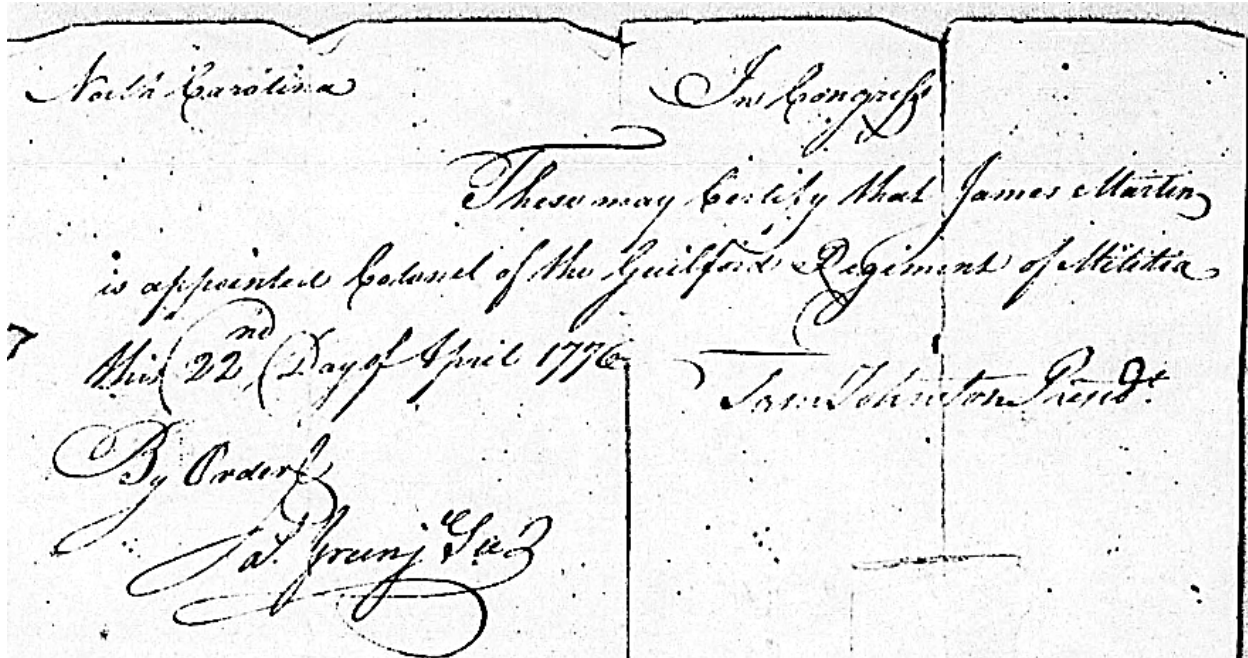 North Carolina
In Congress
These may Certify that James Martin
is appointed Colonel of the Guilford Regiment of Militia
this 22nd Day of April 1776
Sam Johnston Presidt.
By Order
Jas. Green j. Secy